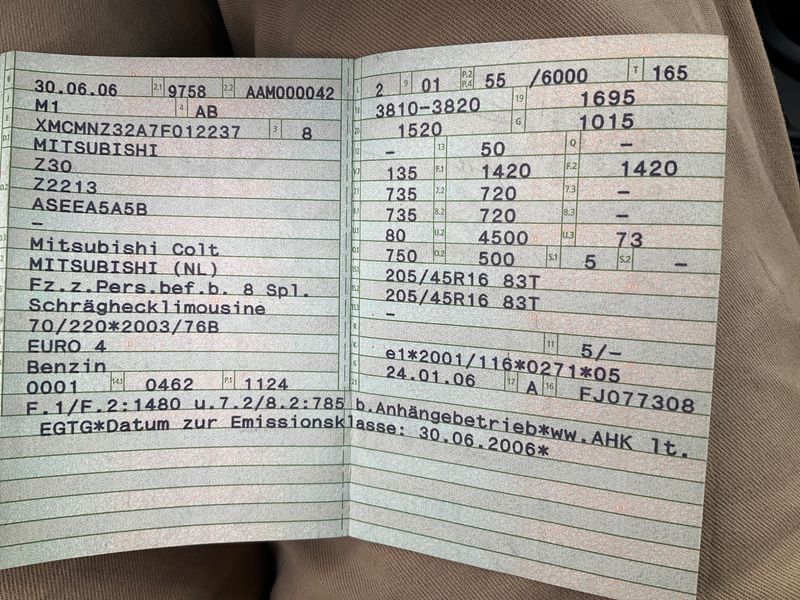 30.06.06 2.1 9758 2.2 AAM000042
M1 4 AB
XMCMNZ32A7F012237 3 8
MITSUBISHI
Z30
Z2213
ASEEA5A5B
–
Mitsubishi Colt
MITSUBISHI (NL)
Fz.z.Pers.bef.b. 8 Spl.
Schräghecklimousine
70/220*2003/76B
EURO 4
Benzin
0001 14.1 0462 P.1 1124
L 2 9 01 P.2 P.4 55 /6000 T 165
18 3810-3820 19 1695
20 1520 G 1015
12 – 13 50 Q –
V.7 135 F.1 1420 F.2 1420
7.1 735 7.2 720 7.3 –
8.1 735 8.2 720 8.3 –
U.1 80 U.2 4500 U.3 73
O.1 750 O.2 500 S.1 5 S.2 –
15.1 205/45R16 83T
15.2 205/45R16 83T
15.3 –
R 11 5/–
K e1*2001/116*0271*05
6 24.01.06 17 A 16 FJ077308
21 F.1/F.2:1480 u.7.2/8.2:785 b.Anhängebetrieb*ww.AHK lt.
EGTG*Datum zur Emissionsklasse: 30.06.2006*